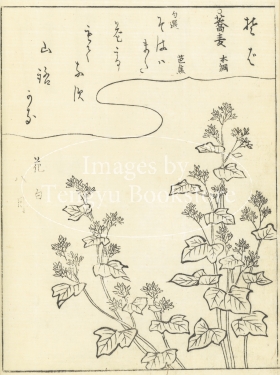 そば
蕎麦 本綱
句選
芭蕉
そばは
まだ
花で
もて
なす
山路
かな
花白
八月
Images From
Bookstore